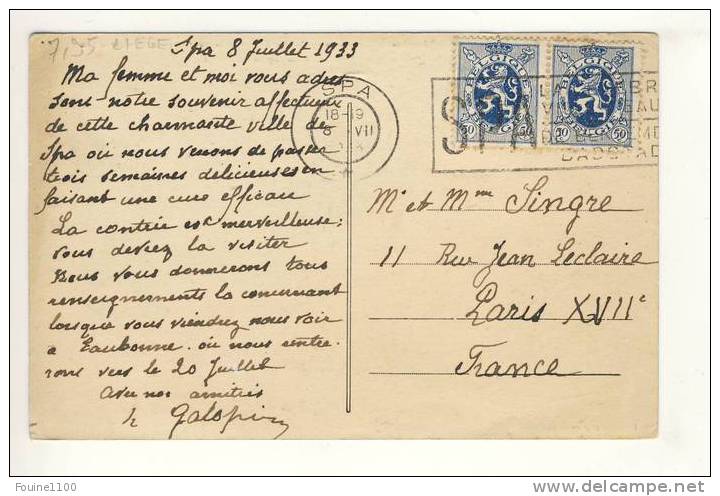 7,95 LIEGE
Spa 8 Juillet 1933
Ma femme et moi vous adres
sons notre souvenir affectueux
de cette charmante ville de
Spa où nous venons de passer
trois semaines délicieuses en
faisant une cure efficace
La contrée est merveilleuse;
vous devriez la visiter
Nous vous donnerons tous
renseignements la concernant
lorsque vous viendrez nous voir
à Eaubonne où nous rentre-
rons vers le 20 Juillet
Avec nos amitiés
h Galopin
SPA
18-19
8 VII
BELGIQUE
BELGIË
50 50
BELGIQUE
BELGIË
50 50
SPA
Mr et Mme Singre
11 Rue Jean Leclaire
Paris XVIIe
France
Fouine1100
www.delcampe.net